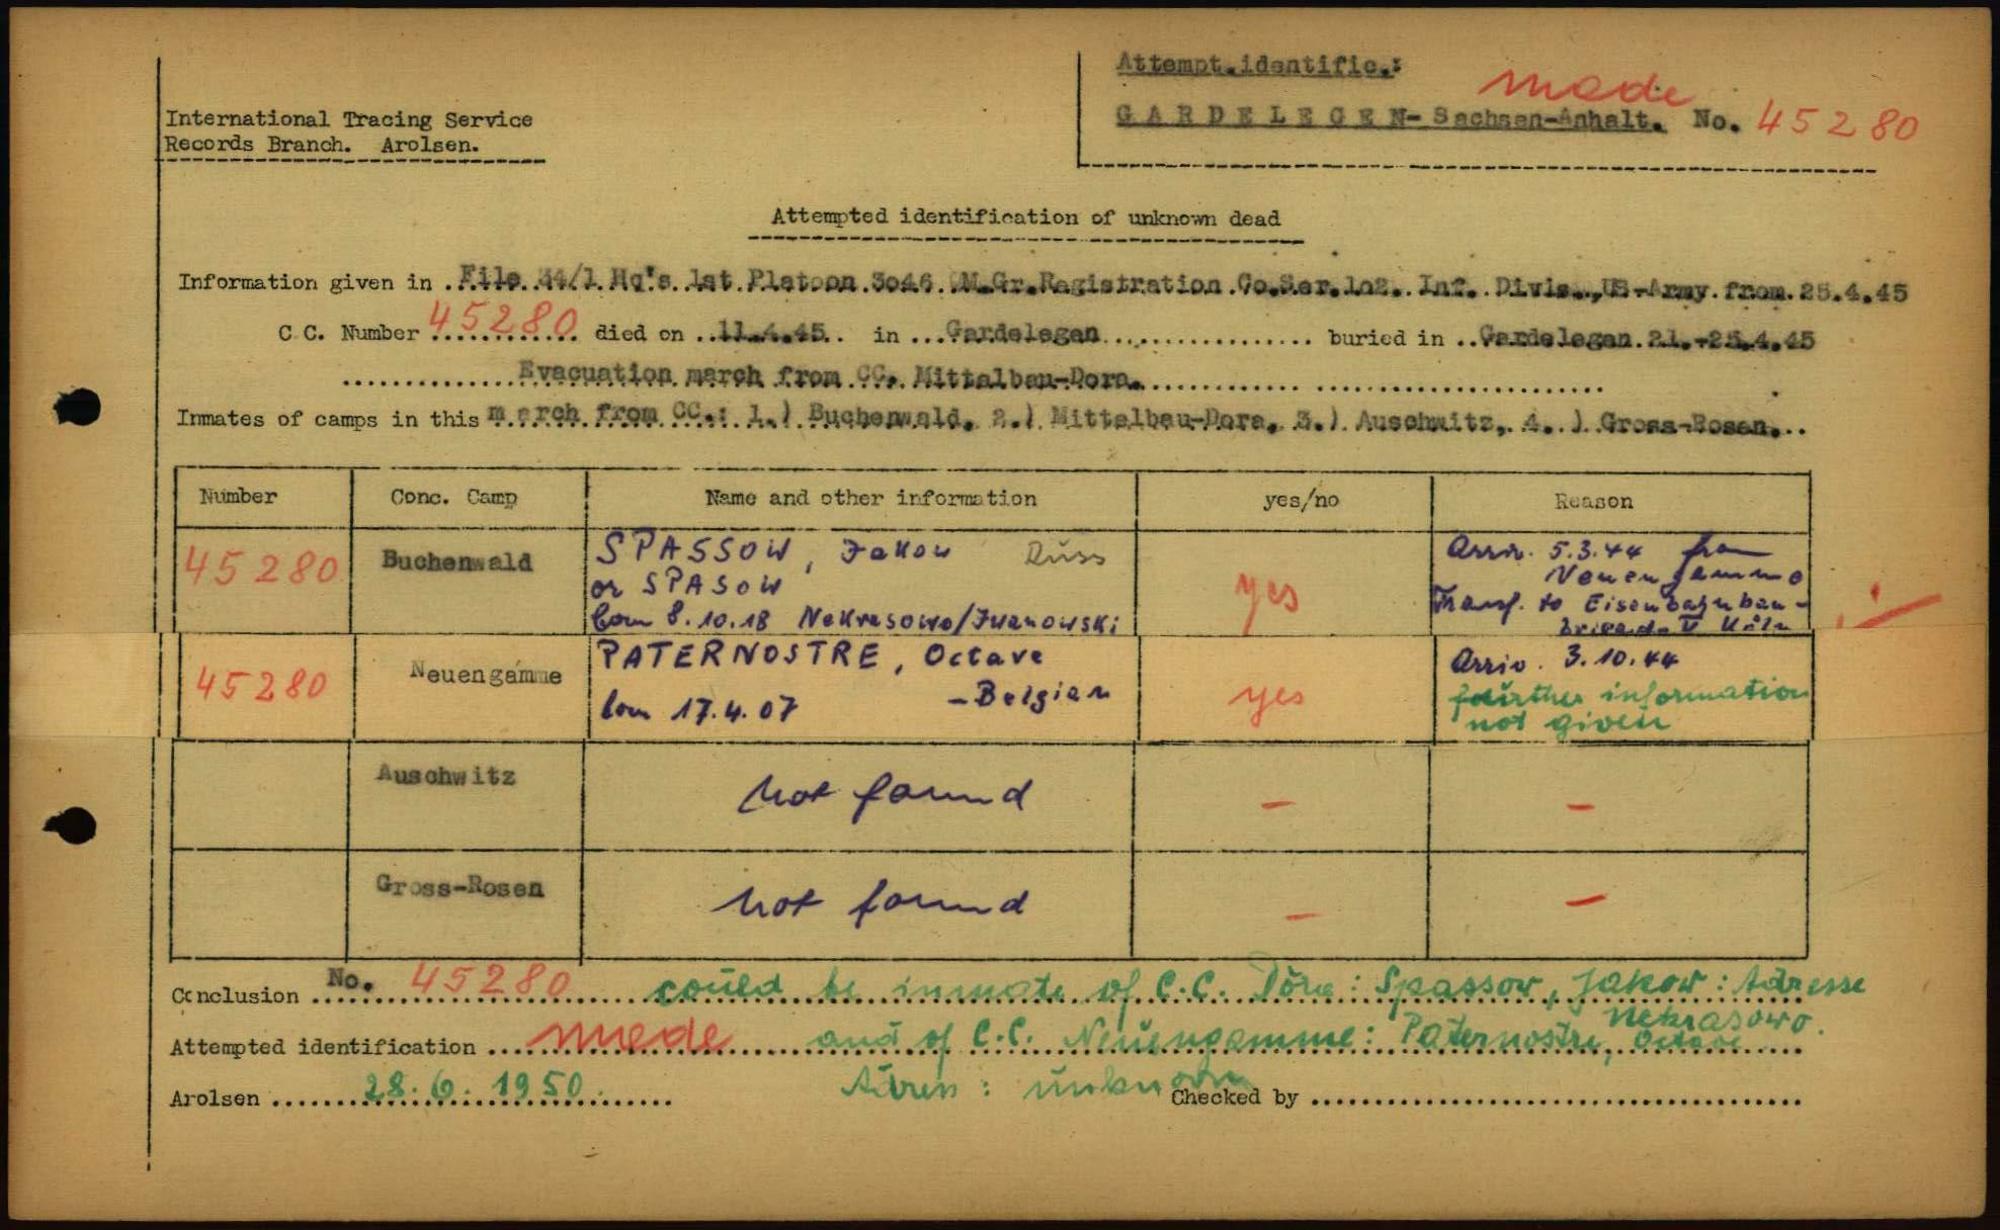 Attempt.identific.:
made
International Tracing Service
GARDELEGEN-Sachsen-Anhalt. No. 45280
Records Branch. Arolsen.
Attempted identification of unknown dead
Information given in .File 34/1 Hq's 1st Platoon 3046 QM.Gr.Registration Co.Ser.1o2. Inf. Divis.,US-Army from 25.4.45
C.C. Number 45280 died on ..11.4.45.. in ...Gardelegen................ buried in ..Gardelegen 21.-25.4.45
...............Evacuation march from CC. Mittalbau-Dora...............................
Inmates of camps in this march from CC.: 1.) Buchenwald, 2.) Mittelbau-Dora, 3.) Auschwitz, 4.) Gross-Rosen...
Number Conc. Camp Name and other information yes/no Reason
45280 Buchenwald SPASSOW, Jakow Russ
or SPASOW
born 8.10.18 Nekrasowo/Iwanowski
yes
Arriv. 5.3.44 from
Neuengamme
Transf. to Eisenbahnbau-
brigade V Köln
45280 Neuengamme PATERNOSTRE, Octave
born 17.4.07 -Belgian
yes
Arriv. 3.10.44
further information
not given
Auschwitz not found - -
Gross-Rosen not found - -
Conclusion No. 45280 could be inmate of C.C. Dora: Spassow, Jakow: Adresse
Nekrasowo.
Attempted identification ... made and of C.C. Neuengamme: Paternostre, Octave
Arolsen 28.6.1950. Adress: unknown Checked by ........................